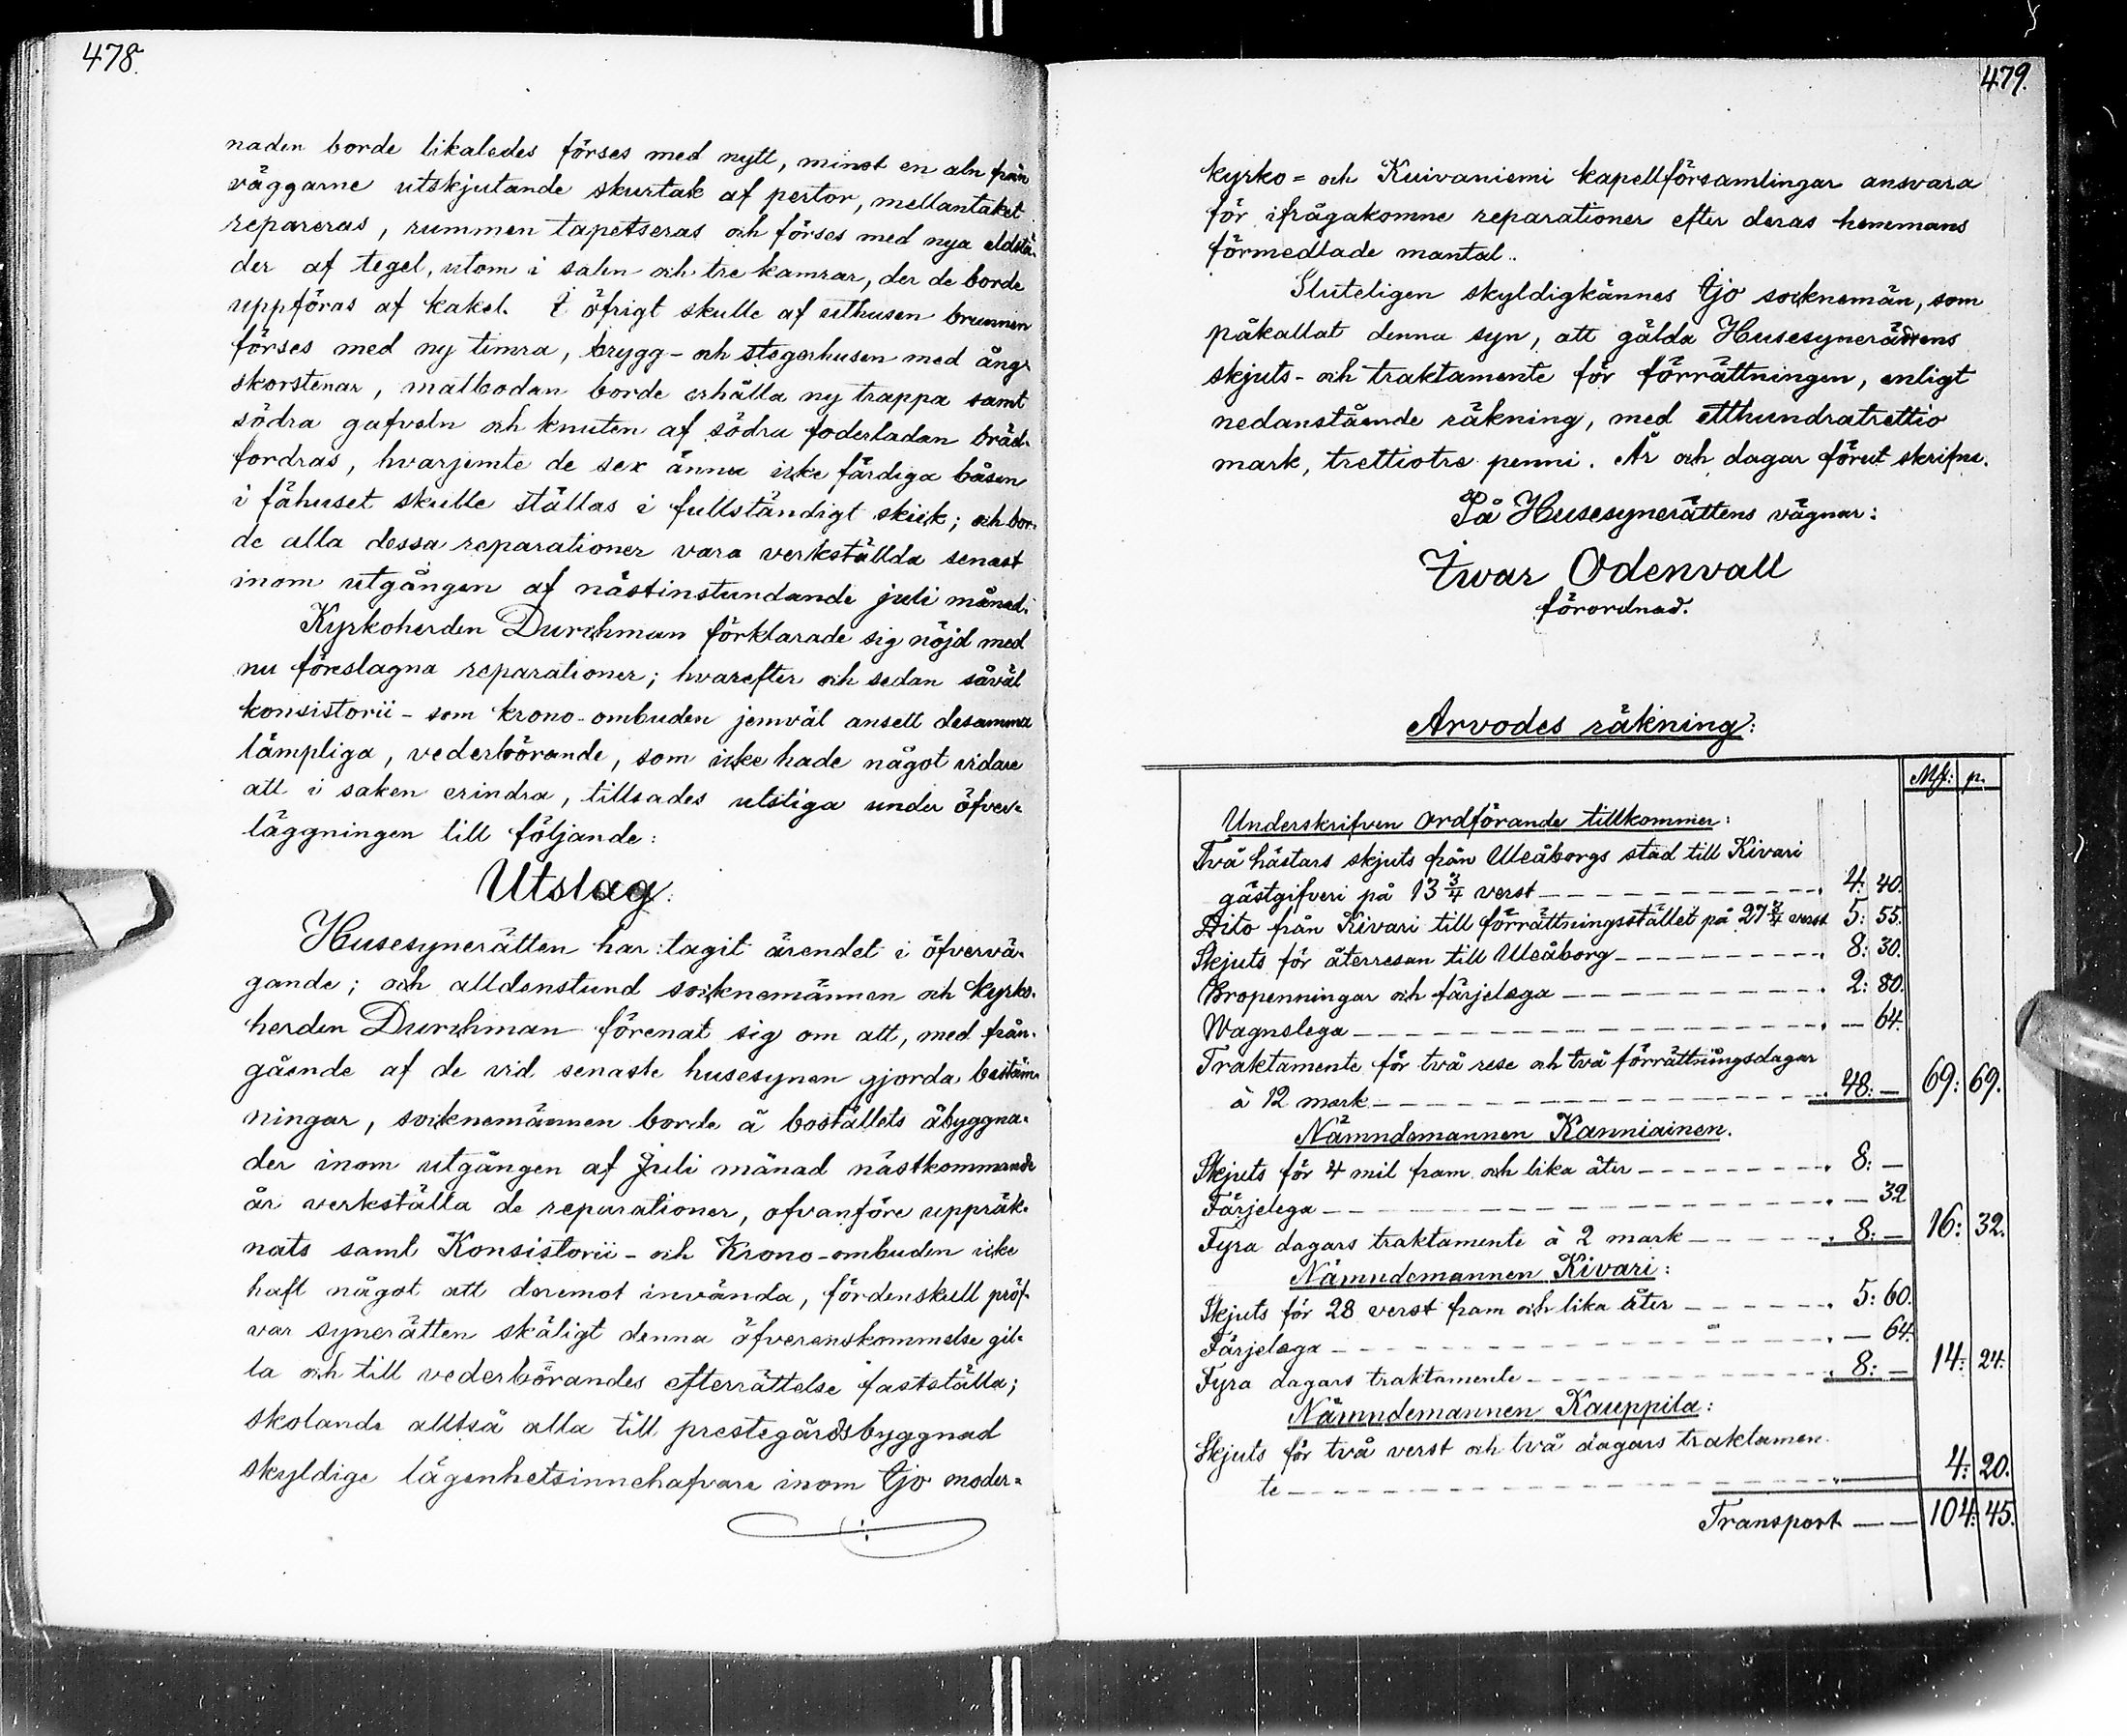 478.
naden borde likaledes förses med nytt, minst en aln från
väggarne utskjutande skurtak af pertor, mellantaket
repareras, rummen tapetseras och förses med nya eldstä-
der af tegel, utom i salen och tre kamrar, der de borde
uppföras af kakel. I öfrigt skulle af uthusen brunnen
förses med ny timra, brygg- och stegerhusen med äng-
skorstenar, matbodan borde erhålla ny trappa samt
södra gafveln och knuten af södra foderladan bräd-
fordras, hvarjemte de sex ännu icke färdiga båsen
i fähuset skulle ställas i fullständigt skick; och bor-
de alla dessa reparationer vara verkställda senast
inom utgången af nästinstundande juli månad.
Kyrkoherden Durchman förklarade sig nöjd med
nu föreslagna reparationer; hvarefter och sedan såväl
konsistorii- som krono-ombuden jemväl ansett desamma
lämpliga, vederbörande, som icke hade något vidare
att i saken erindra, tillsades utstiga under öfver-
läggningen till följande:
Utslag:
Husesynerätten har tagit ärendet i öfvervä-
gande; och alldenstund socknemännen och kyrko-
herden Durchman förenat sig om att, med från-
gående af de vid senaste husesynen gjorda bestäm-
ningar, socknemännen borde å boställets åbyggna-
der inom utgången af Juli månad nästkommande
år verkställa de reparationer, ofvanföre uppräk-
nats samt Konsistorii- och Krono-ombuden icke
haft något att deremot invända, fördenskull pröf-
var synerätten skäligt denna öfverenskommelse gil-
la och till vederbörandes efterrättelse fastställa;
skolande alltså alla till prestegårdsbyggnad
skyldige lägenhetsinnehafvare inom Ijo moder-
479.
kyrko- och Kuivaniemi kapellförsamlingar ansvara
för ifrågakomne reparationer efter deras hemmans
förmedlade mantal.
Sluteligen skyldigkännes Ijo socknemän, som
påkallat denna syn, att gälda Husesynerättens
skjuts- och traktamente för förrättningen, enligt
nedanstående räkning, med etthundratrettio
mark, trettiotre penni. År och dagar förut skrifne.
På Husesynerättens vägnar:
Iwar Odenvall
förordnad.
Arvodes räkning:
Mk: p.
Underskrifven ordförande tillkommer:
Två hästars skjuts från Uleåborgs stad till Kivari
gästgifveri på 13 3/4 verst 4: 40.
Dito från Kivari till förrättningsstället på 27 3/4 verst 5: 55.
Skjuts för återresan till Uleåborg 8: 30.
Bropenningar och färjelega 2: 80.
Wagnslega — 64.
Traktamente för två rese och två förrättningsdagar
à 12 mark 48: — 69: 69.
Nämndemannen Kanniainen.
Skjuts för 4 mil fram och lika åter 8: —
Färjelega — 32
Fyra dagars traktamente à 2 mark 8: — 16: 32.
Nämndemannen Kivari:
Skjuts för 28 verst fram och lika åter 5: 60.
Färjelega — 64.
Fyra dagars traktamente 8: — 14: 24.
Nämndemannen Kauppila:
Skjuts för två verst och två dagars traktamen-
te 4: 20.
Transport — 104: 45.